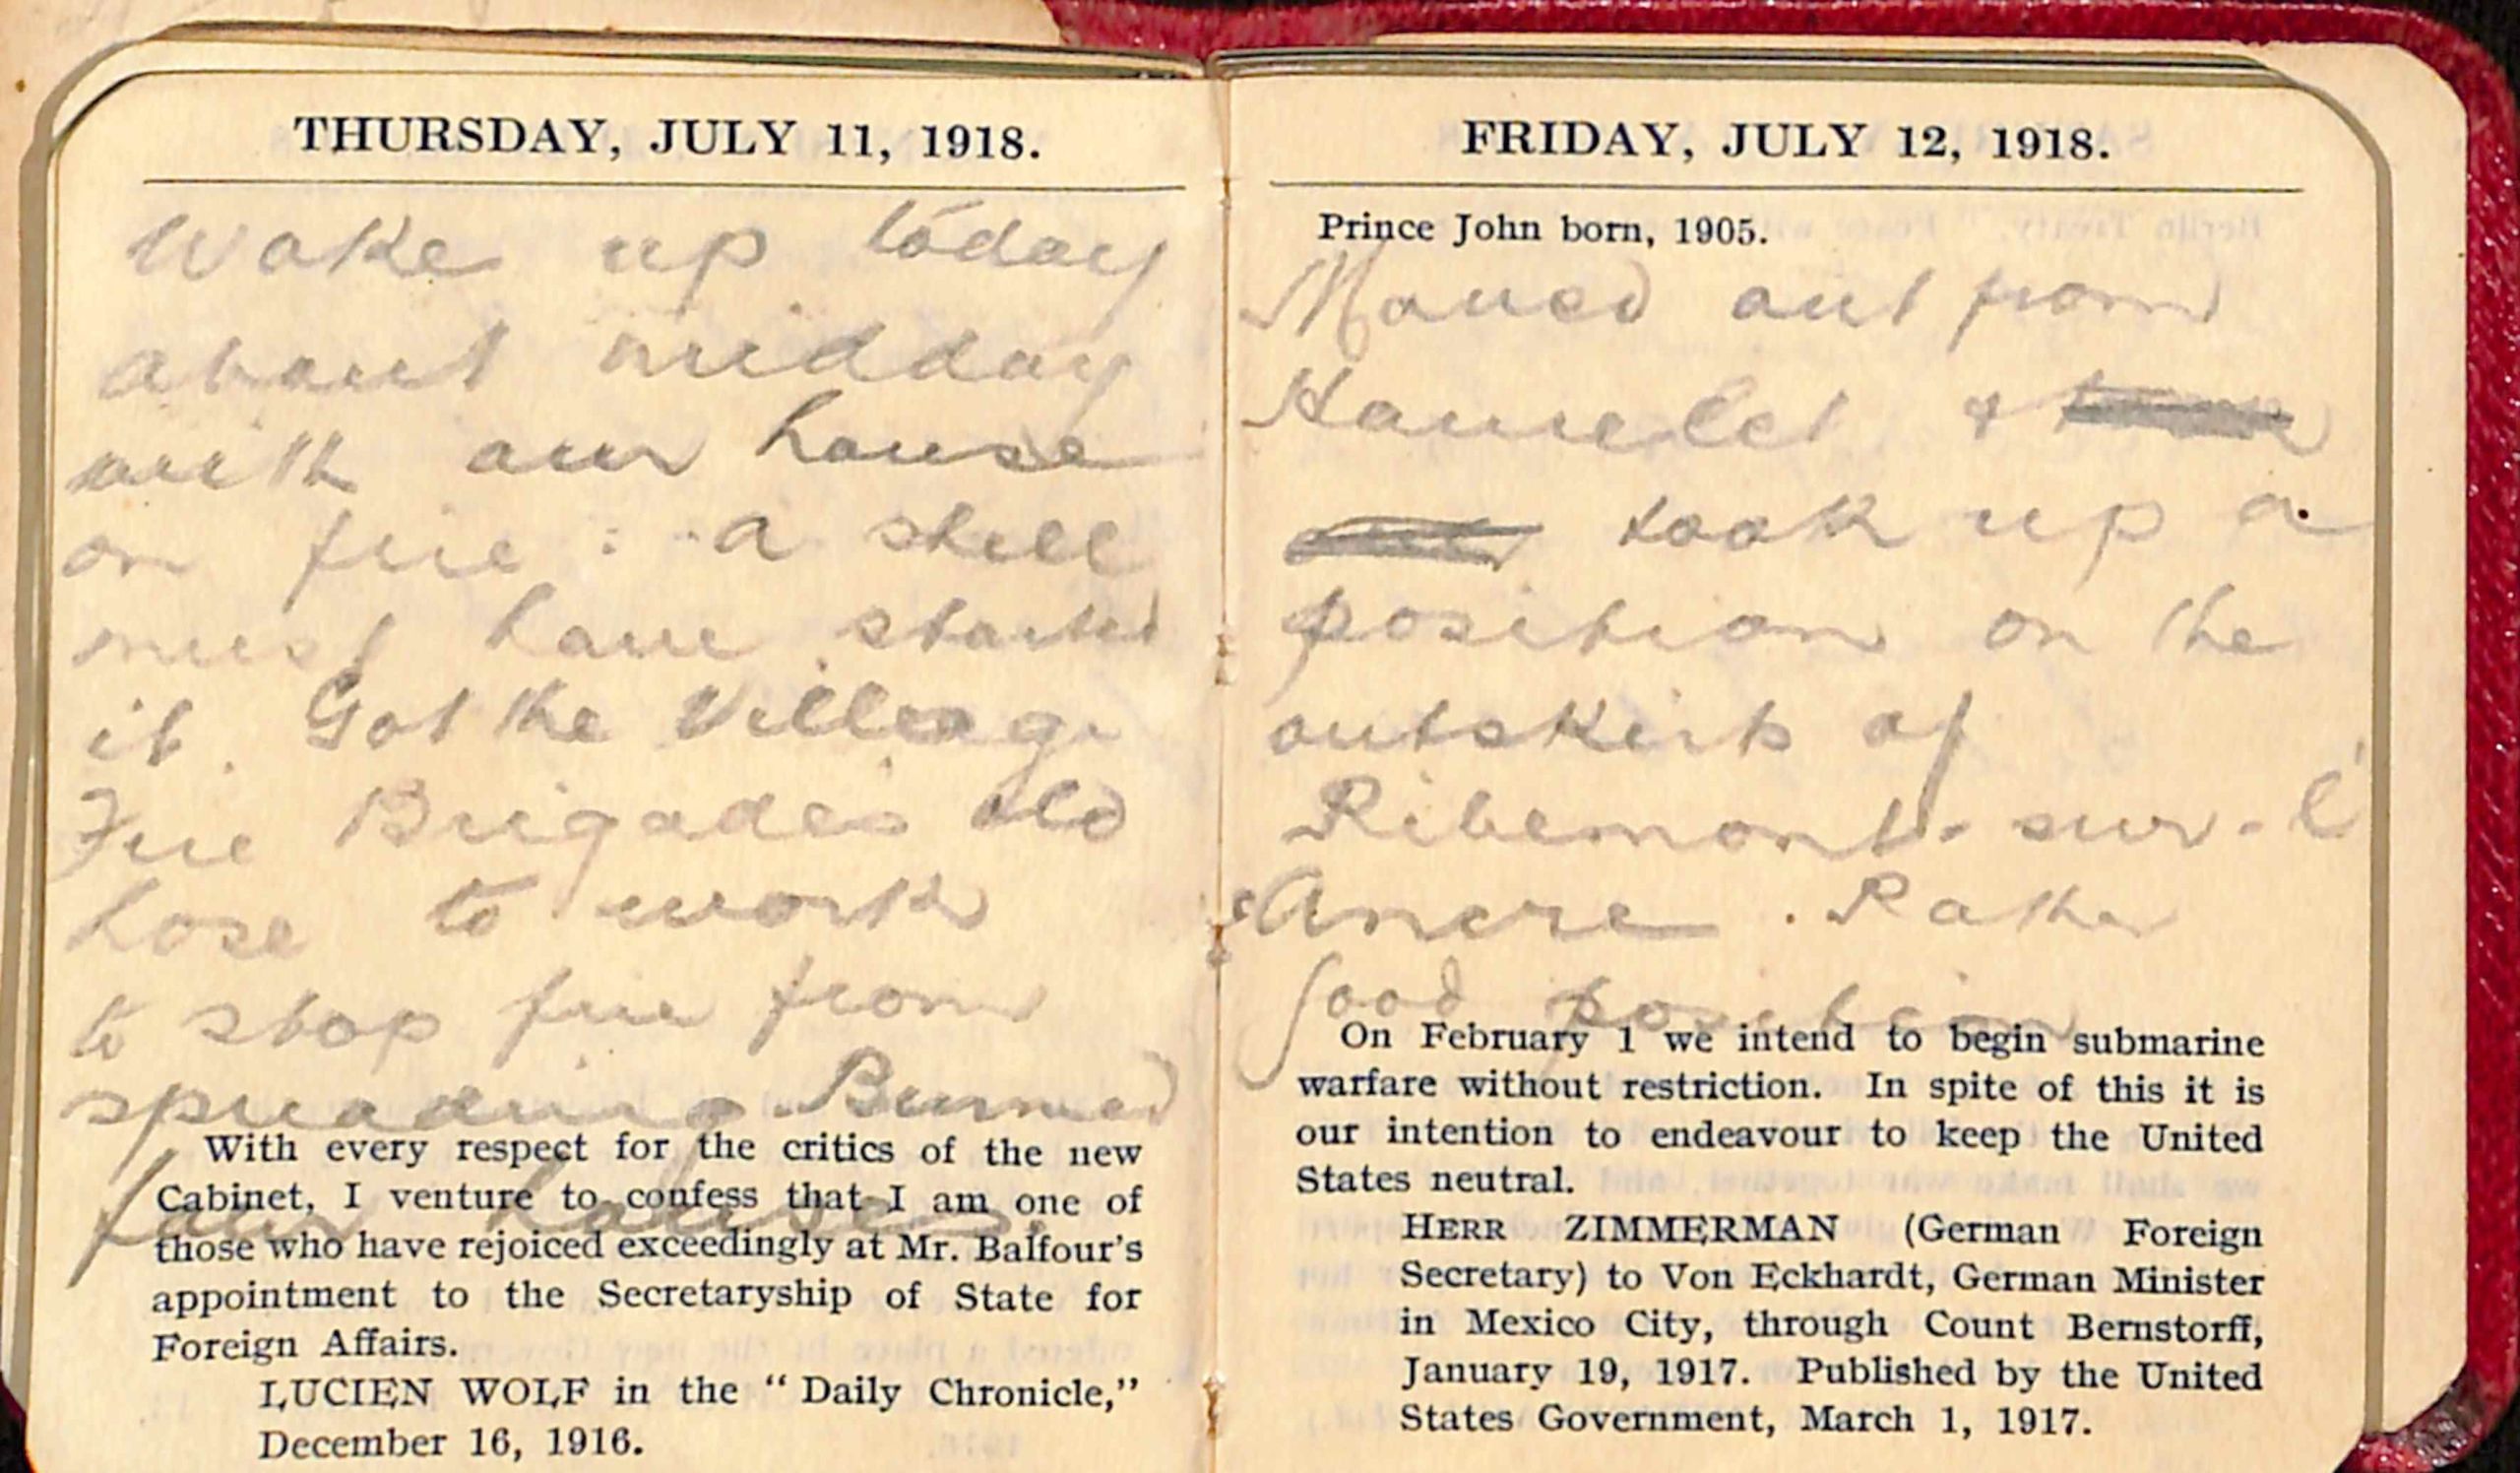 THURSDAY, JULY 11, 1918.
Woke up today
about midday
with our house
on fire : a shell
must have started
it. Got the Village
Fire Brigade's old
hose to work
to stop fire from
spreading. Burned
four houses.
With every respect for the critics of the new
Cabinet, I venture to confess that I am one of
those who have rejoiced exceedingly at Mr. Balfour's
appointment to the Secretaryship of State for
Foreign Affairs.
LUCIEN WOLF in the "Daily Chronicle,"
December 16, 1916.
FRIDAY, JULY 12, 1918.
Prince John born, 1905.
Moved out from
Hamelet &
took up a
position on the
outskirts of
Ribemont-sur-l'
Ancre. Rather
good position
On February 1 we intend to begin submarine
warfare without restriction. In spite of this it is
our intention to endeavour to keep the United
States neutral.
HERR ZIMMERMAN (German Foreign
Secretary) to Von Eckhardt, German Minister
in Mexico City, through Count Bernstorff,
January 19, 1917. Published by the United
States Government, March 1, 1917.